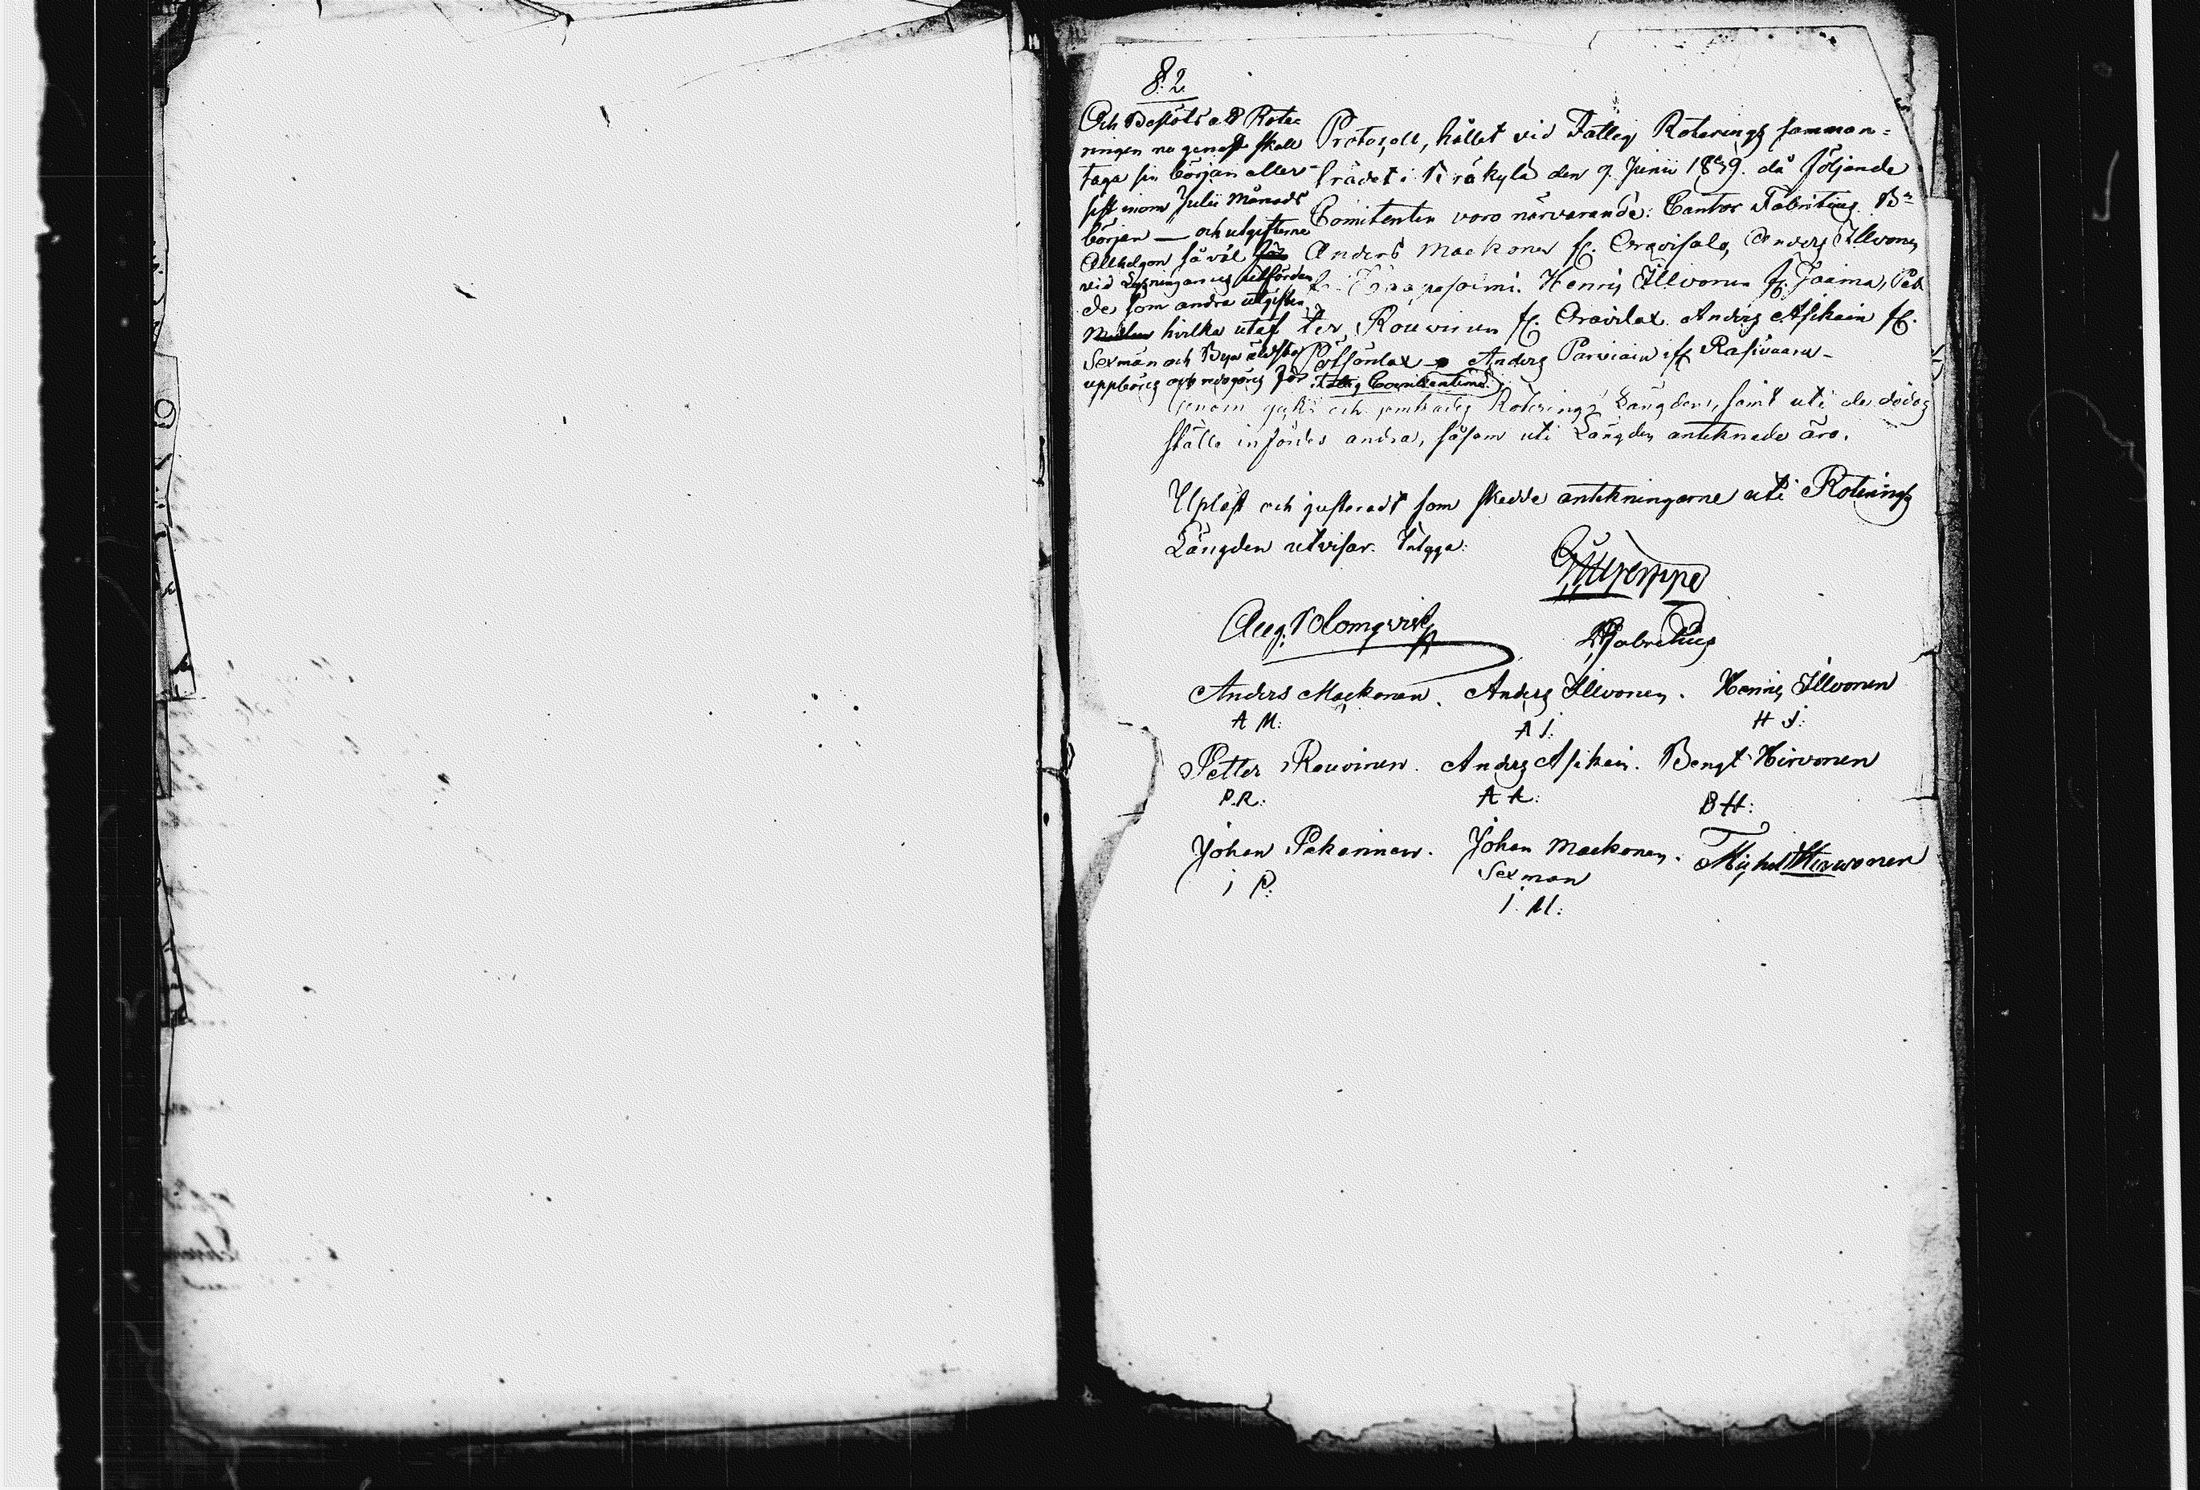 8.2.
Och Beslöts att Rote-
ringen nu genast skall
taga sin början eller
sist inom Julii Månads
början — och utgifterne
Allhelgon såväl för
vid Lysningarnes utförden
de som andra utgifter
hvilka utaf
Sexmän och Byn äldsta
uppbäres och redogöres för
Fattig Comitenterne.
Protocoll, hållet vid Fattig Roterings samman-
trädet i Kräkylä den 9. Junii 1839. då följande
Comitenter voro närvarande: Cantor Fabritius. B:
Anders Mackonen fr. Oravisalo, Anders Illvonen
fr. Haapasalmi. Henric Illvonen fr. Jaama, Pet-
ter Rouvinen fr. Oravilax. Anders Asikain fr.
Pötsönlax Anders Parviain fr. Rasivaara -
Genom gicks och jemkades Roterings Längden, samt uti de dödas
ställe infördes andra, såsom uti Längden anteknade äro.
Upläst och justeradt som skedde antekningarne uti Roterings
Längden utvisar. Intyga:
Aug. Blomqvist
Fabritius
Anders Mackonen. Anders Illvonen. Henric Illvonen
A M: A I: H I:
Petter Rouvinen. Anders Asikain. Bengt Hirvonen
P.R: A A: B H:
Johan Pekarinen. Johan Mackonen. Michel Hirwonen
Sexman
I P: I. M: